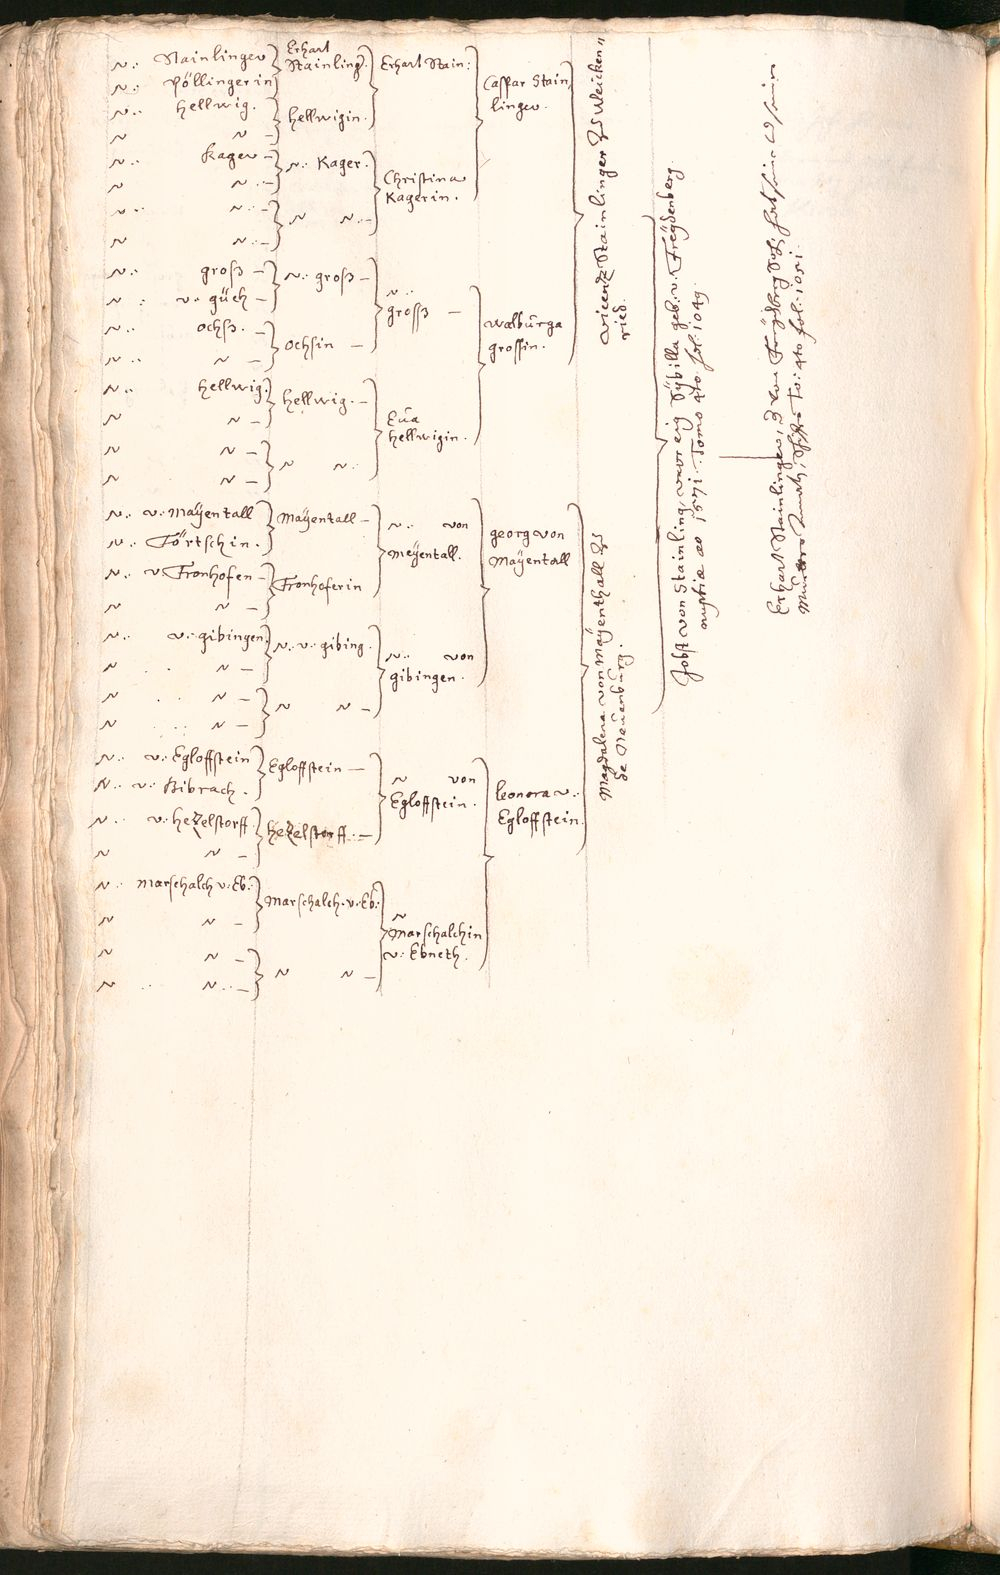 N.. Stainlinger
N.. Pöllingerin
N.. Hellwig.
N N –
N.. Kager –
N N. –
N.. N.. –
N N.. –
N.. groß –
N : v. güch –
N.. Ochß. –
N.. N –
N.. Hellwig.
N N –
N N –
N. N –
N.. v: Maÿentall
N..Förtschin.
N.. v Fronhofen –
N N –
N.. v: gibingen
N. N –
N N –
N N –
N.. v: Egloffstein
N.. v: Bibrach.
N.. v: Hezelstorff
N N –
N.. Marschalch v: Eb:
N N –
N N –
N N.. –
Erhart
Stainling.
Hellwigin.
N.. Kager.
N N.. –
N.. groß –
Ochsin –
Hellwig. –
N N..
Maÿentall –
Fronhoferin
N. v. gibing.
N N –
Egloffstein –
Hezelstorff. –
Marschalch. v. Eb:
N N –
Erhart Stain:
Christina
Kagerin.
N..
gross –
Eua
Hellwigin.
N.. von
Meÿentall.
N.. von
gibingen.
N von
Egloffstein.
N
Marschalchin
v: Ebneth.
Caspar Stain
linger.
Walburga
grossin.
georg von
Maÿentall
Leonora v:
Egloffstein.
Vicenz Stainlinger zu Weicken"
ried.
Magdalena von Maÿenthall zu
de Neuenburg.
Jobst von Stainling, uxor eig Sÿbilla geb. v. Freÿdenberg
nuptiæ ao 1571. Tomo 4to fol. 1049.
Erhart Stainlinger,
4to fol. 1051.